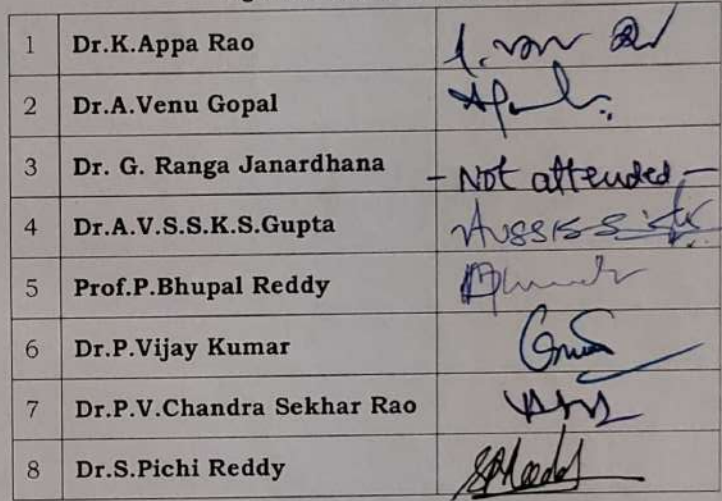 1 Dr.K.Appa Rao
2 Dr.A.Venu Gopal
3 Dr. G. Ranga Janardhana - Not attended -
4 Dr.A.V.S.S.K.S.Gupta
5 Prof.P.Bhupal Reddy
6 Dr.P.Vijay Kumar
7 Dr.P.V.Chandra Sekhar Rao
8 Dr.S.Pichi Reddy